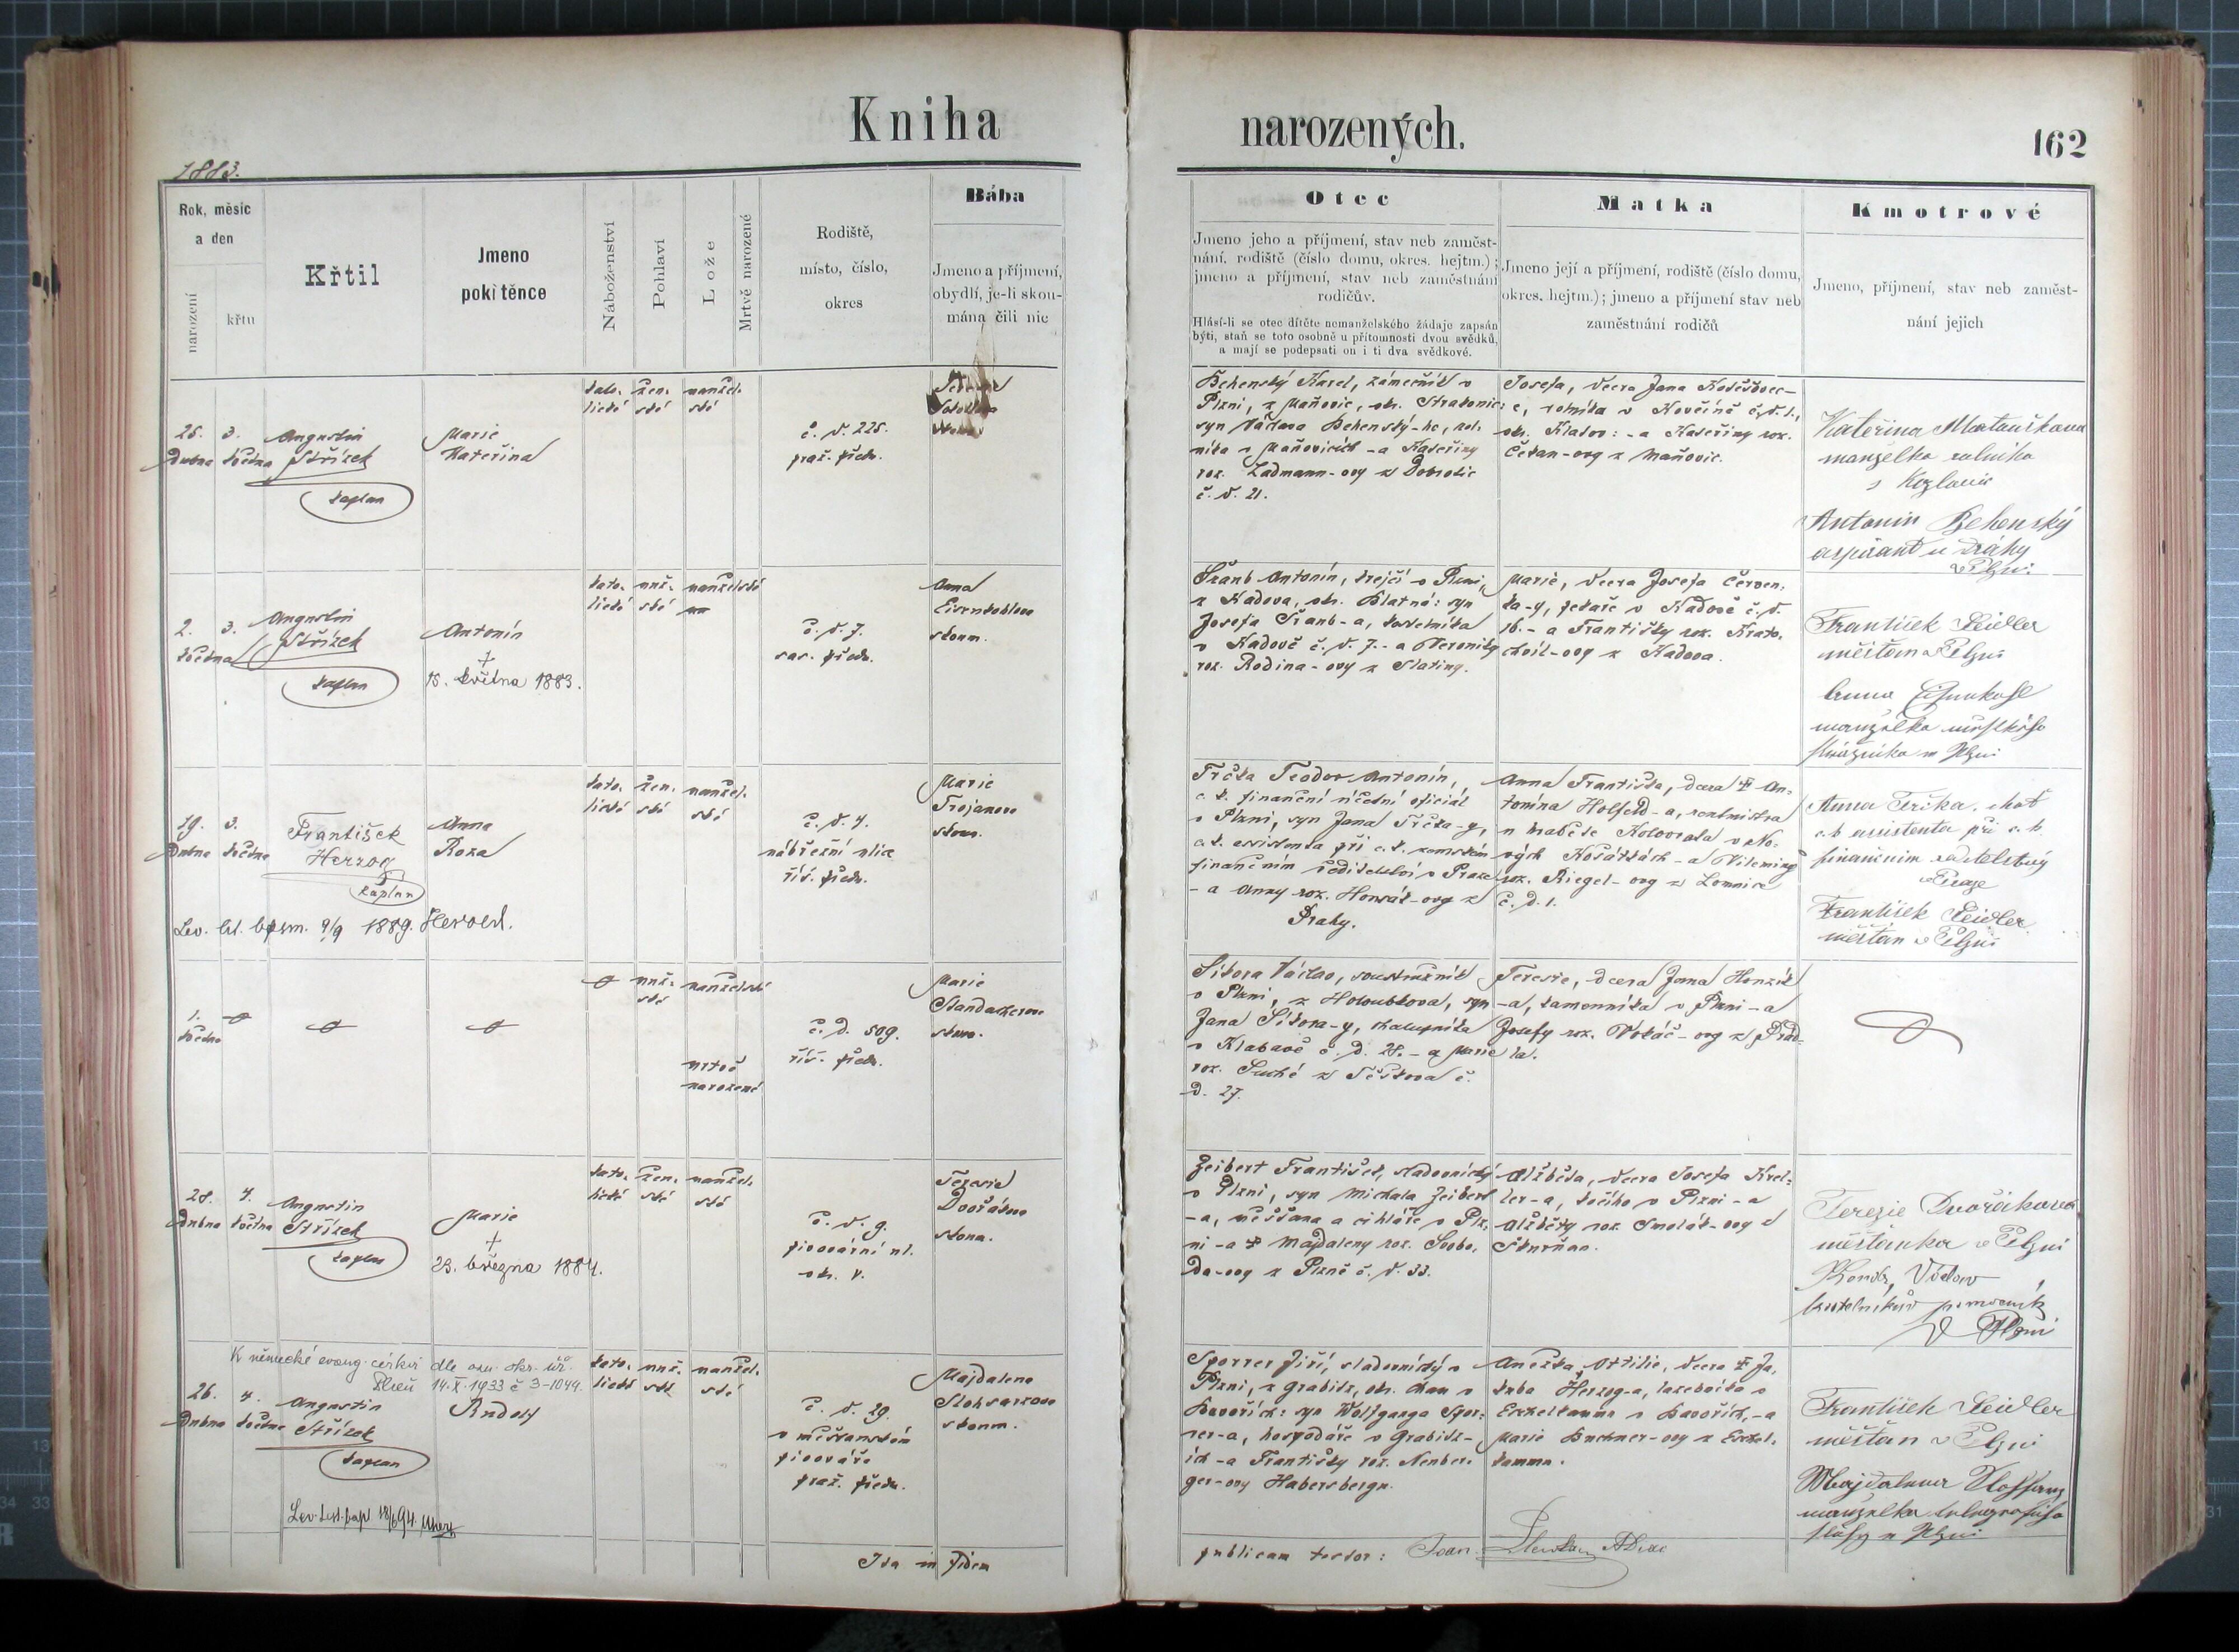 Kniha
narozených.
162
1883.
Rok, měsíc
a den
narození
křtu
Křtil
Jmeno
pokřtěnce
Náboženství
Pohlaví
Lože
Mrtvě narozené
Rodiště,
místo, číslo,
okres
Bába
Jmeno a příjmení,
obydlí, je-li skou-
mána čili nic
Otec
Jmeno jeho a příjmení, stav neb zaměst-
nání, rodiště (číslo domu, okres. hejtm.);
jmeno a příjmení, stav neb zaměstnání
rodičův.
Hlásí-li se otec dítěte nemanželského žádaje zapsán
býti, staň se toto osobně u přítomnosti dvou svědků,
a mají se podepsati on i ti dva svědkové.
Matka
Jmeno její a příjmení, rodiště (číslo domu,
okres. hejtm.); jmeno a příjmení stav neb
zaměstnání rodičů
Kmotrové
Jmeno, příjmení, stav neb zaměst-
nání jejich
25. 3.
Dubna května
Augustin
Střízek
kaplan
Marie
Kateřina
kato- žen- manžel-
lické ské ské
č. d. 225.
praž. předm.
Behenský Karel, zámečník v
Plzni, z Maňovic, okr. Strakonic:
syn Václava Behenský-ho, rol-
níka v Maňovicích - a Kateřiny
roz. Ladmann-ovy z
č. d. 21.
Josefa, dcera Jana
rolníka v č. d. 1.,
okr. Klatov: - a Kateřiny roz.
Čekan-ovy z Maňovic.
Kateřina Matouškova
manželka rolníka
z Kozlovic
Antonin Behenský
aspirant u dráhy
v Plzni
2. 3.
května
Augustin
Střízek
kaplan
Antonín
+
15. května 1883.
kato- muž- manželské
lické ské
č. d. 7.
sas. předm.
Anna
Eisenkohlova
skoum.
Šranb Antonín, krejčí v Plzni,
z Kadova, okr. Blatná: syn
Josefa Šranb-a,
v Kadově č. d. 7. - a Veroniky
roz. Rodina-ovy z Slatiny.
Marie, dcera Josefa Červen-
ka-y, pekaře v Kadově č. d.
16. - a Františky roz. Krato-
chvil-ovy z Kadova.
František Seidler
měšťan v Plzni
Anna Eisenkohl
manželka městského
strážníka v Plzni
19. 3.
Dubna května
František
Herzog
kaplan
Anna
Roza
kato- žen- manžel-
lické ské ské
č. d. 4.
nábřežní ulice
říš. předm.
Marie
Trojanova
skoum.
Lev. lit. bapsm. 9/9 1889. Herold.
Trčka Teodor Antonín,
c. k. finanční účetní oficiál
v Plzni, syn Jana Trčka-y,
c. k. assistenta při c. k. zemském
finančním ředitelství v Praze
- a Anny roz. Honsák-ovy z
Prahy.
Anna Františka, dcera + An-
tonína Holfeld-a, rentmistra
u hraběte Kolovrata v No-
vých Košátkách - a Vilemíny
roz. Riegel-ovy z Lomnice
č. d. 1.
Anna Trčka, choť
c. k. assistenta při c. k.
finančním ředitelství
v Praze
František Seidler
měšťan v Plzni
1.
května
muž- manželské
ské
mrtvě
narozené
č. d. 509.
říš. předm.
Marie
skoum.
Síkora Václav, soustružník
v Plzni, z Holoubkova, syn
Jana Síkora-y, chalupníka
v Klabavě č. d. 28. - a Marie
roz. Suché z Těškova č.
d. 27.
Terezie, dcera Jana Honzík
-a, kameníka v Plzni - a
Josefy roz. Vokáč-ovy z
28. 4.
Dubna května
Augustin
Střízek
kaplan
Marie
+
23. března 1884.
kato- žen- manžel-
lické ské ské
č. d. 9.
pivovární ul.
okr. V.
Terezie
Dvořákova
skoum.
Zeibert František, sladovnický
v Plzni, syn Michala Zeibert
-a, měšťana a cihláře v Plz-
ni - a + Magdaleny roz. Svobo-
da-ovy z Plzně č. d. 33.
Alžběta, dcera Josefa Krel-
ler-a, kočího v Plzni - a
Alžběty roz. Smolák-ovy z
Štenovic.
Terezie Dvořáková
měšťanka v Plzni
Václav
pomocník
v Plzni
K německé evang. církvi dle ozn. okr. úř.
Plzeň 14. X. 1933 č 3-1044.
26. 4.
Dubna května
Augustin
Střízek
kaplan
Rudolf
kato- muž- manžel-
lické ské ské
č. d. 29.
v měšťanském
pivováře
praž. předm.
Majdalena
skoum.
Lev. test. bapt 18/6 94.
Sporrer Jiří, sladovnický v
Plzni, z Grabitz, okr. Cham v
Bavořích: syn Wolfganga Spor-
rer-a, hospodáře v Grabitz-
ích - a Františky roz. Neuber-
ger-ovy Habersbergu.
Anežka Otilie, dcera + Ja-
kuba Herzog-a, lazebníka v
Eschelkammu v Bavořích, - a
Marie Buchner-ovy z Eschel-
kammu.
František Seidler
měšťan v Plzni
Majdalena
manželka telegrafního
sluhy v Plzni
Ita in fidem
publicam testor: Joan.